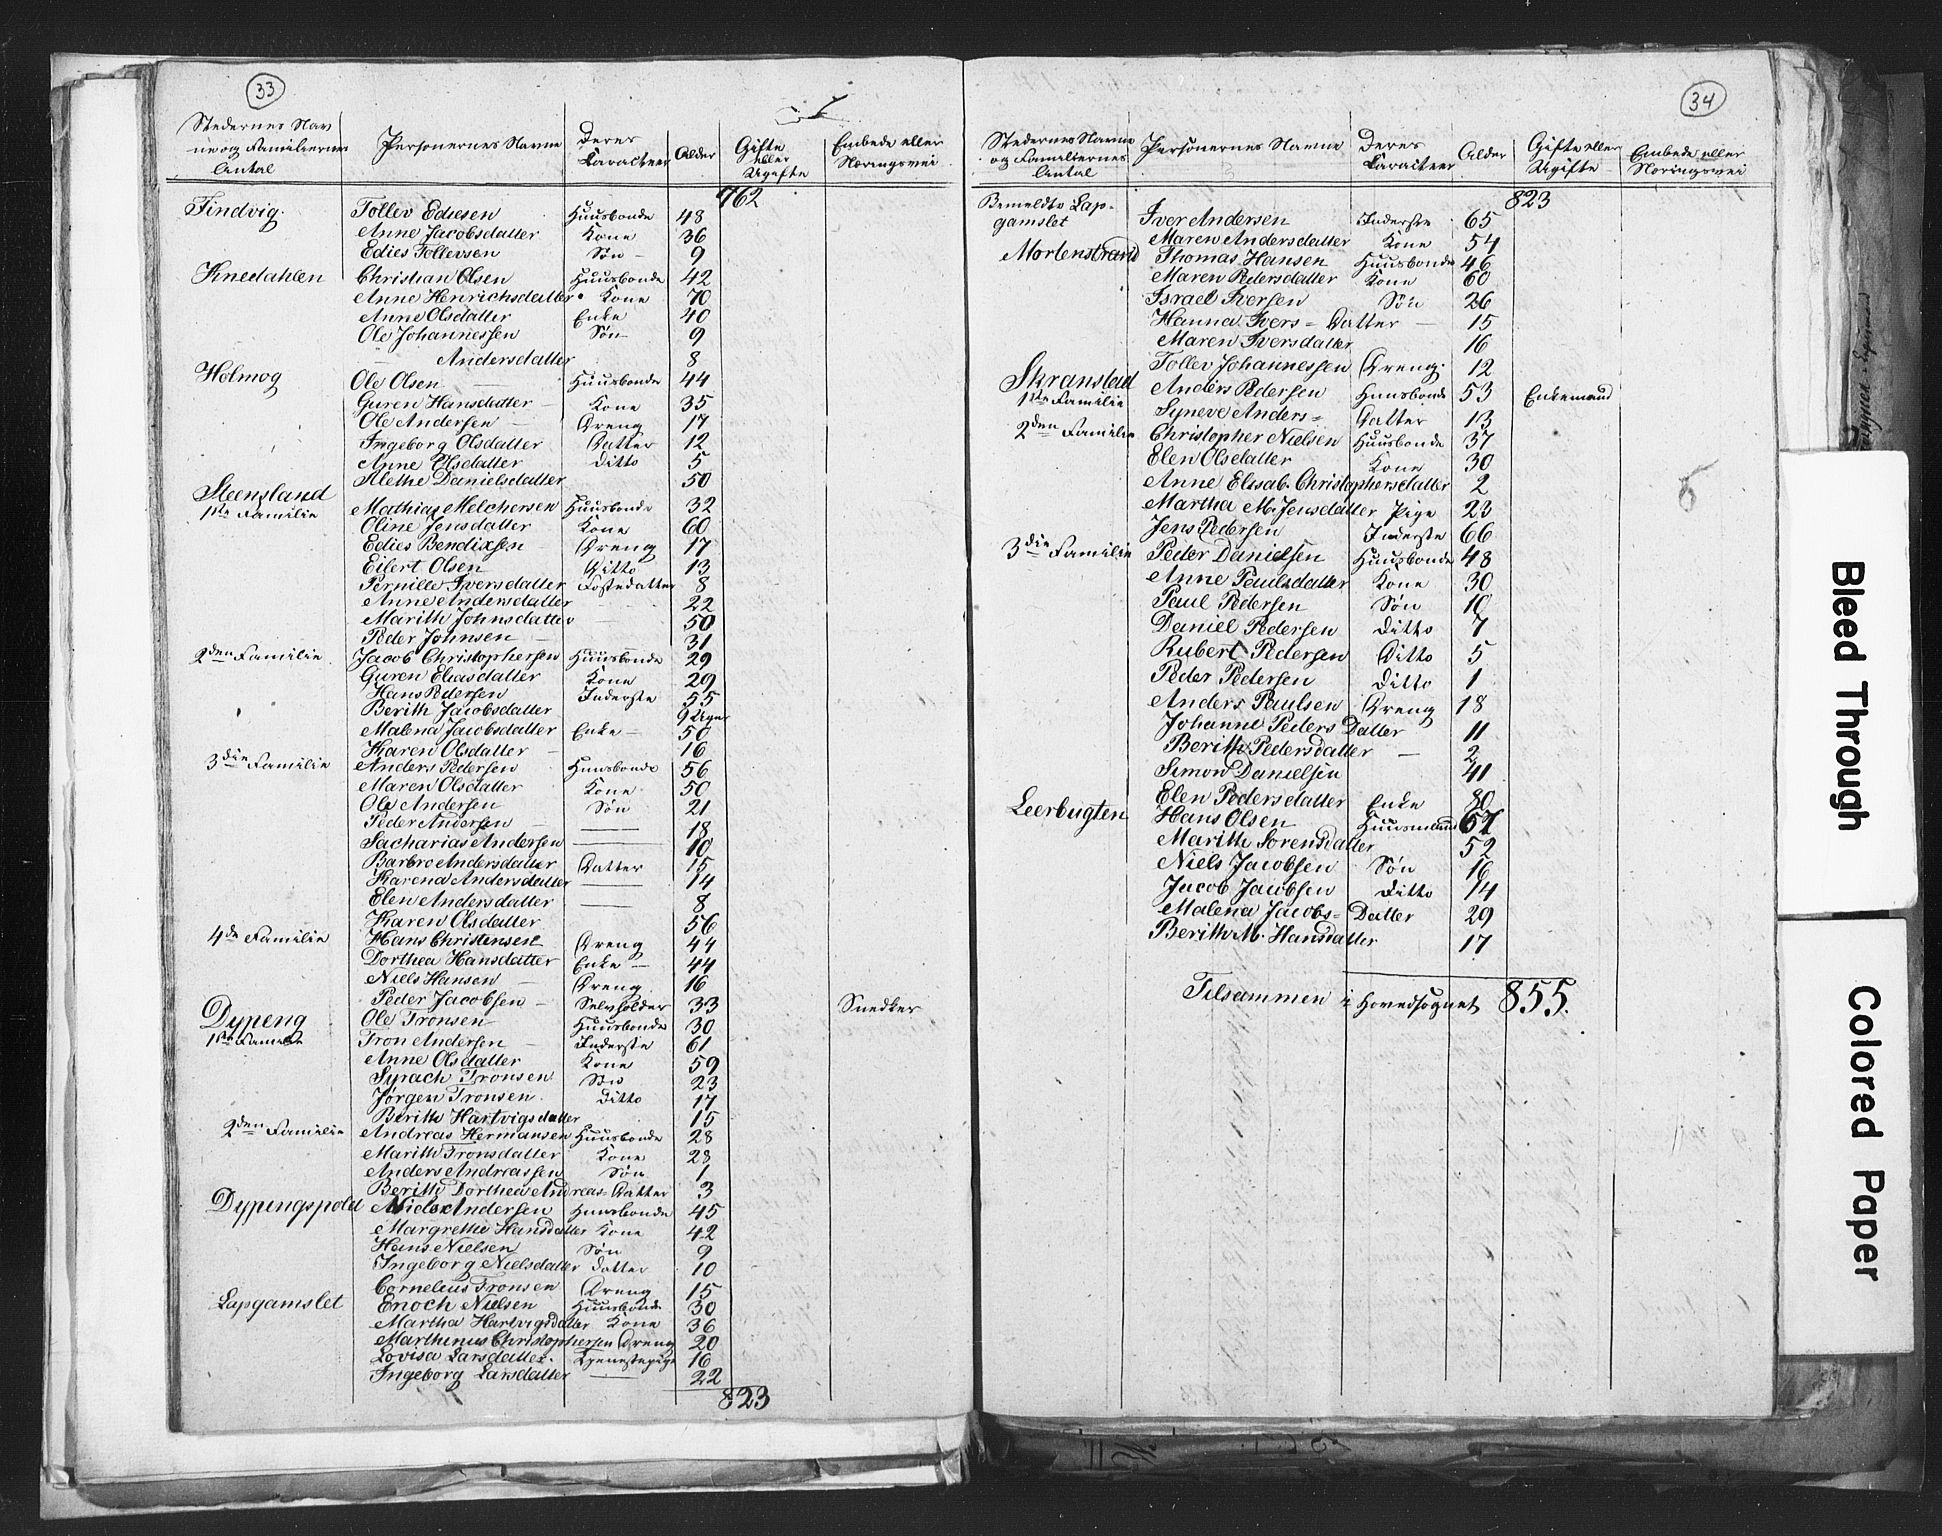 33
Stedernes Nav
ne og Familiernes
Antal
Personernes Navne
Deres
Caracteer
Alder
Gifte
eller
Ugifte
Embede eller
Næringsvei
762
Findvig. Tollev Edisesen Huusbonde 48
Anne Jacobsdatter Kone 36
Edies Tollevsen Søn – 9
Knedahlen Christian Olsen Huusbonde 42
Anne Henrichsdatter Kone 70
Anne Olsdatter Enke 40
Ole Johannessen Søn 9
— Andersdatter 8
Holmog Ole Olsen — Huusbonde 44
Guren Hansdatter – Kone 35
Ole Andersen – Dreng 17
Ingeborg Olsdatter Datter 12
Anne Olsdatter Ditto 5
Alethe Danielsdatter 50
Steensland
1ste Familie Mathias Melchersen Huusbonde 32
Oline Jensdatter Kone 60
Edies Bendixsen – Dreng 17
Eilert Olsen Ditto 13
Pernille Iversdatter Fostedatter 8
Anne Andersdatter 22
Marith Johnsdatter — 50
Peder Johnsen — 31
2den Familie Jacob Christophersen Huusbonde 29
Guren Eliasdatter Kone 29
Hans Pedersen Inderste 55
Berith Jacobsdatter 9 Uger
Malena Jacobsdatter Enke – 50
Karen Olsdatter – 16
3die Familie Anders Pedersen Huusbonde 56
Maren Olsdatter Kone 50
Ole Andersen Søn 21
Peder Andersen — — 18
Sacharias Andersen — 10
Barbro Andersdatter Datter 15
Karena Andersdatter — 14
Elen Andersdatter — 8
Karen Olsdatter 56
4de Familie Hans Christensen Dreng 44
Dorthea Hansdatter Enke – 44
Niels Hansen – Dreng 16
Peder Jacobsen – Selvholder 33 Snedker
Dypeng
1ste Familie Ole Tronsen Huusbonde 30
Tron Andersen – Inderste 61
Anne Olsdatter Kone 59
Syrach Tronsen Søn 23
Jørgen Tronsen. Ditto 17
Berith Hartvigsdatter 15
2den Familie Andreas Hermansen Huusbonde 28
Marith Tronsdatter Kone 28
Anders Andreassen Søn 1
Berith Dorthea Andreas= Datter 3
Dypengspold Niels Andersen Huusbonde 45
Margrethe Hansdatter Kone 42
Hans Nielsen Søn 9
Ingeborg Nielsdatter Datter 10
Cornelius Tronsen Dreng 15
Lapgamslet Enoch Nielsen Huusbonde 30
Martha Hartvigsdatter Kone 36
Marthinus Christophersen Dreng 20
Lovisa Larsdatter. Tjenestepige 16
Ingeborg Larsdatter — 22
823
34
Stedernes Navne
og Familiernes
Antal
Personernes Navne
Deres
Caracteer
Alder
Gifte eller
Ugifte
Embede eller
Næringsvei
823
Bemeldte Lap-
gamslet Iver Andersen Inderste 65
Maren Andersdatter Kone 54
Mortenstrand Thomas Hansen Huusbonde 46
Maren Pedersdatter Kone 60
Israel Iversen Søn 26
Hanna Ivers= Datter — 15
Maren Iversdatter 16
Tollev Johannessen Dreng. 12
Skranstad
1ste Familie Anders Pedersen Huusbonde 53 Enkemand
Syneve Anders= Datter 13
2den Familie Christopher Nielsen Huusbonde 37
Elen Olsdatter Kone 30
Anne Elisab. Christophersdatter 2
Martha M. Jensdatter Pige 23
Jens Pedersen Inderste 66
3die Familie Peder Danielsen Huusbonde 48
Anne Paulsdatter Kone 30
Paul Pedersen Søn 10
Daniel Pedersen Ditto 7
Rubert Pedersen Ditto 5
Peder Pedersen Ditto 1
Anders Paulsen Dreng 18
Johanne Peders Datter 11
Berith Pedersdatter — 2
Simon Danielsen 41
Elen Pedersdatter Enke 80
Leerbugten Hans Olsen Huusmand 67
Marith Sorensdatter 52
Niels Jacobsen Søn 16
Jacob Jacobsen Ditto 14
Malena Jacobs= Datter 29
Berith M. Hansdatter 17
Tilsammen i Hovedsognet 855.
Bleed Through
Colored Paper